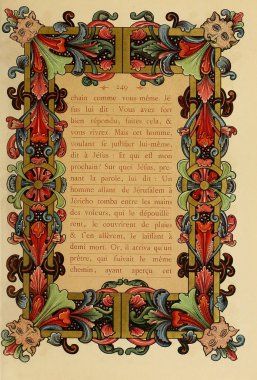 249
chain comme vous-même Jé
sus lui dit : Vous avez fort
bien répondu, faites cela, &
vous vivrez Mais cet homme,
voulant se justifier lui-même,
dit à Jésus : Et qui est mon
prochain? Sur quoi Jésus, pre-
nant la parole, lui dit : Un
homme allant de Jérusalem à
Jéricho tomba entre les mains
des voleurs, qui le dépouillè
rent, le couvrirent de plaies
& s'en allèrent, le laissant à
demi mort. Or, il arriva qu'un
prêtre, qui suivait le même
chemin, ayant aperçu cet